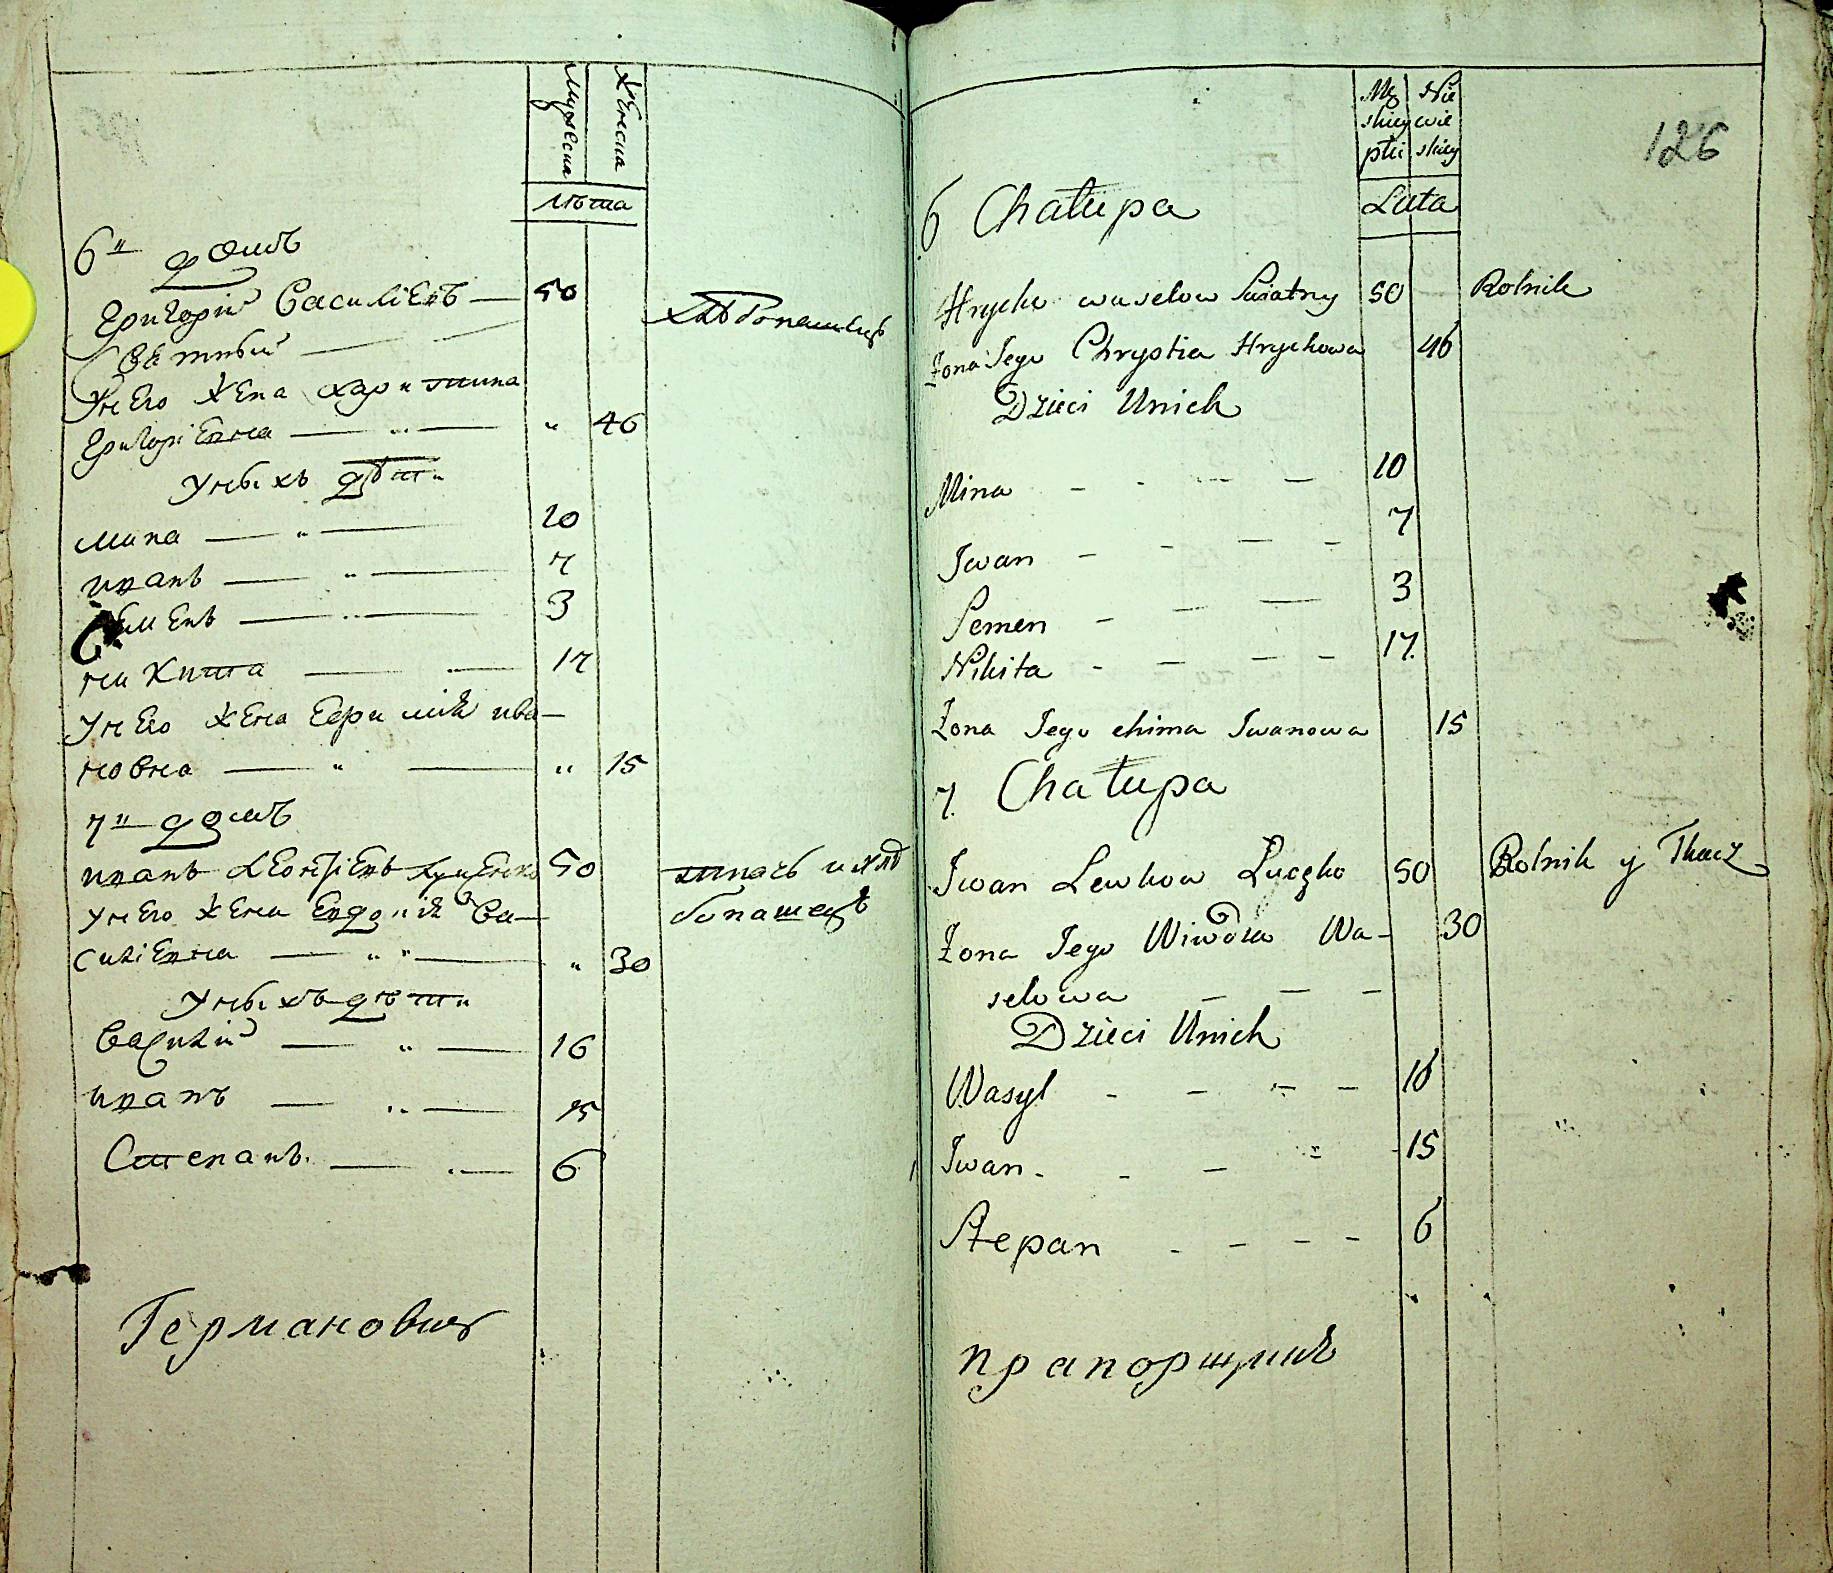 Мужеска
Женска
лѣта
6" домъ
Григорій Василіевъ — 50
Хлѣбопашецъ
Свѣтный
У него жена Харитина
Григоріевна — " — " 46
У нихъ дѣти
Мина — " — 10
иванъ — " — 7
Семенъ — " — 3
никита — " — 17
У него жена Евфимія ива-
новна — " — " 15
7" домъ
иванъ Леонтіевъ 50
ткачъ и хлѣ
бопашецъ
У него жена Евдокія Ва-
силіевна — " " — " 30
У нихъ дѣти
Василій — " — 16
иванъ — " — 15
Степанъ — " — 6
Германович
126
Mę Nie
skiey wie
płci skiey
Lata
6 Chałupa
Hryćko waselow Swiatny 50 Rolnik
Żona Jego Chrystia Hryckowa 46
Dzieci Unich
Mina - - - - 10
Jwan - - - - 7
Semen - - - 3
Nikita - - - - 17.
Żona Jego chima Jwanowa 15
7. Chałupa
Jwan Lewkow 50 Rolnik y Tkacz
Żona Jego Wiwdia Wa- 30
selowa - - -
Dzieci Unich
Wasyl - - - - 16
Jwan - - - - 15
Stepan - - - - 6
прапорщикъ